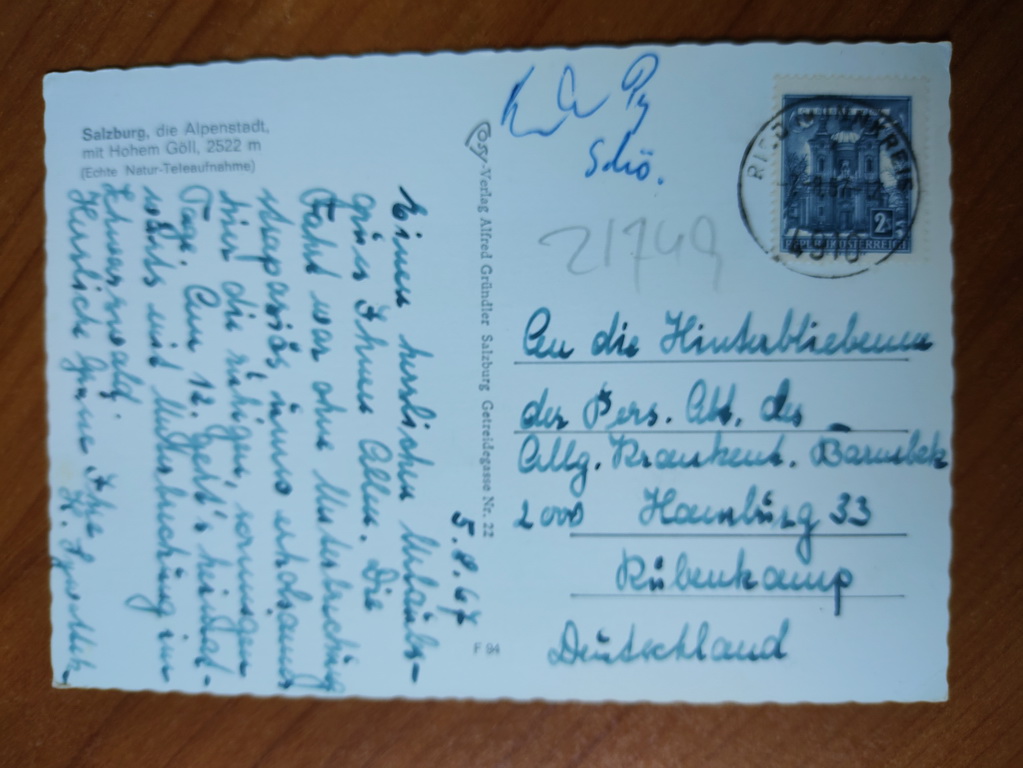 Salzburg, die Alpenstadt,
mit Hohem Göll, 2522 m
(Echte Natur-Teleaufnahme)
Cosy-Verlag Alfred Gründler Salzburg Getreidegasse Nr. 22
F 94
5.8.67
Einen herzlichen Urlaubs-
gruß Ihnen Allen. Die
Fahrt war ohne Unterbrechung
strapaziös, umso erholsamer
hier die ruhigen, sonnigen
Tage. Am 12. geht's heimat-
wärts mit Unterbrechung im
Schwarzwald.
Herzliche Grüße Ihre
H.
Schö.
21749
2
REPUBLIK ÖSTERREICH
4910
An die Hinterbliebenen
der Pers. Abt. des
Allg. Krankenh. Barmbek
2000 Hamburg 33
Rübenkamp
Deutschland